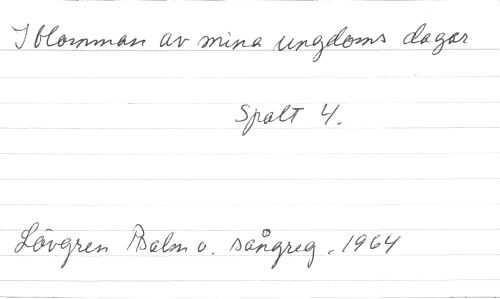 I blomman av mina ungdoms dagar
Spalt 4.
Lövgren Psalm o. sångreg. 1964